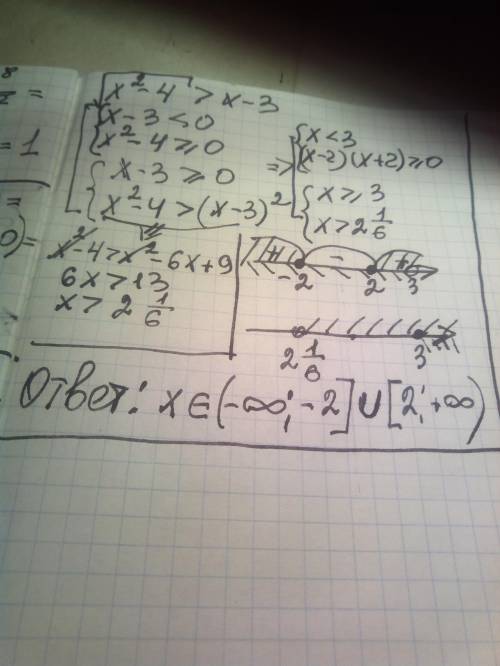 8
2 =
= 1
=
0) =
√x²-4 > x-3
x-3<0
x²-4⩾0
x-3⩾0
x²-4>(x-3)²
=> x<3
(x-2)(x+2)⩾0
x⩾3
x>2 1/6
x²-4>x²-6x+9
6x>13
x> 2 1/6
+ - +
-2 2 3
2 1/6 3
Ответ: x∈(-∞;-2]∪[2;+∞)